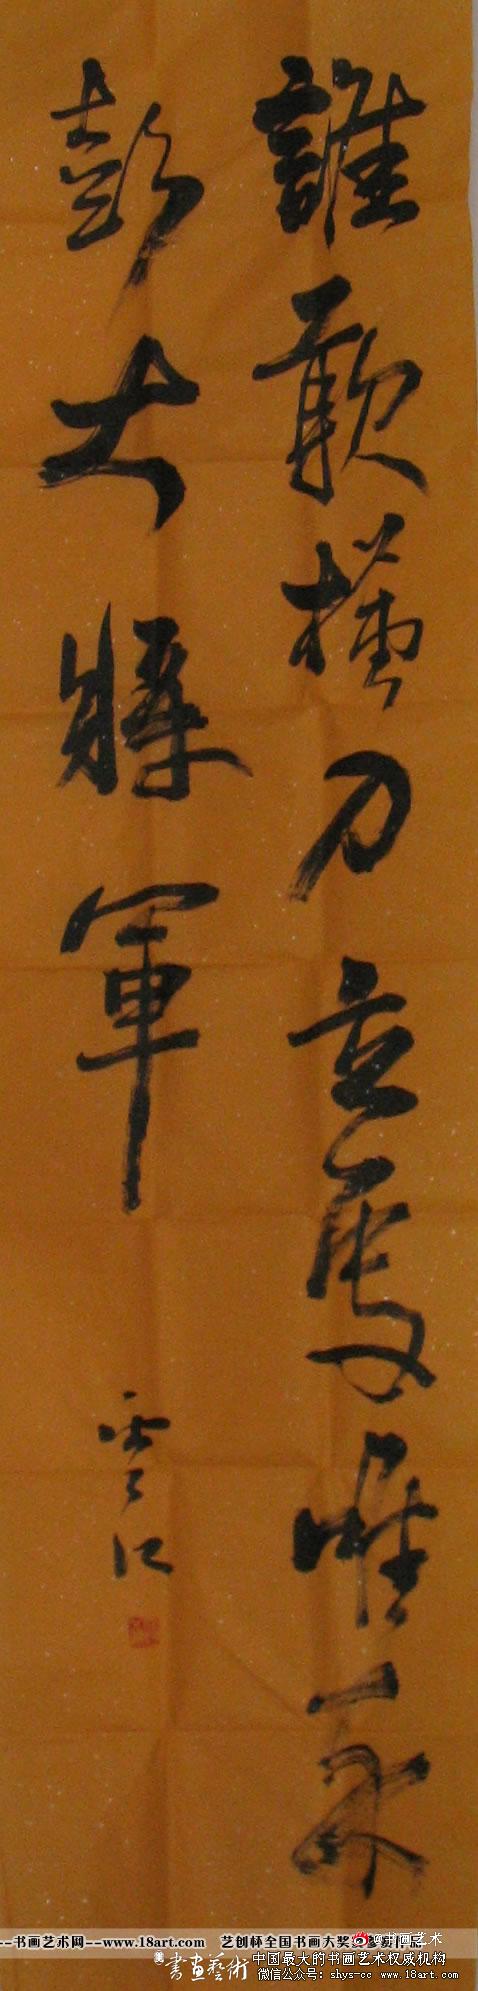 誰敢橫刀立馬唯我
彭大將軍
雲江
--书画艺术网--www.18art.com 艺创杯全国书画大奖
@书画艺术
書畫藝術
中国最大的书画艺术权威机构
微信公众号: shys-cc www.18art.com